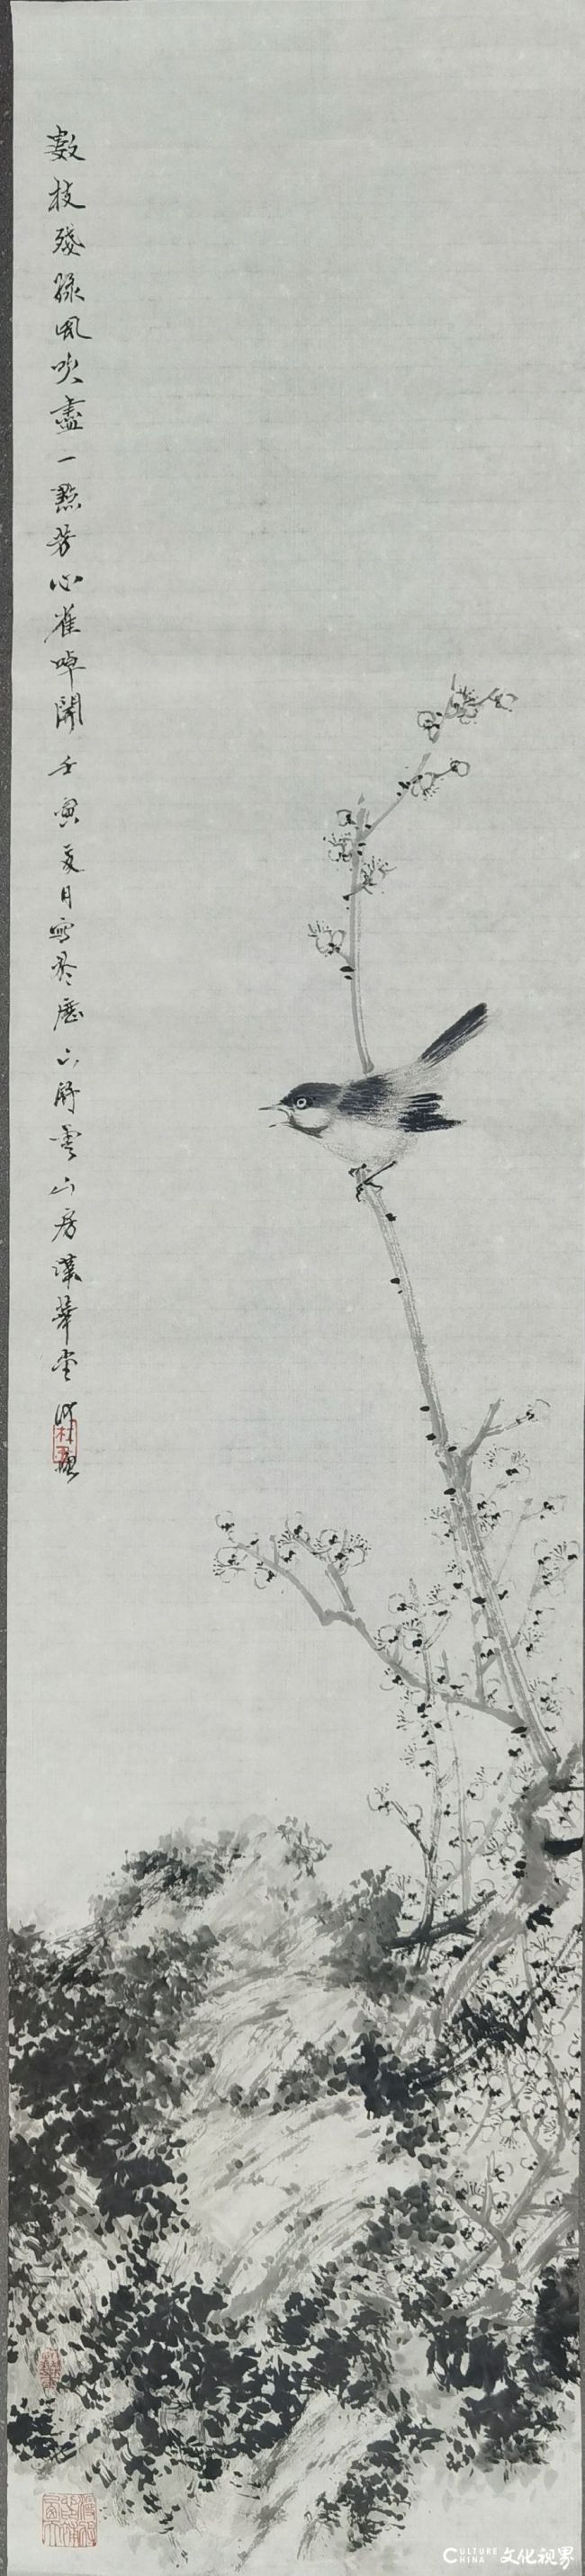 數枝殘綠風吹盡一點芳心雀啅開壬寅夏月寫於歷下聽雲山房漢華堂
CULTURE CHINA 文化视界